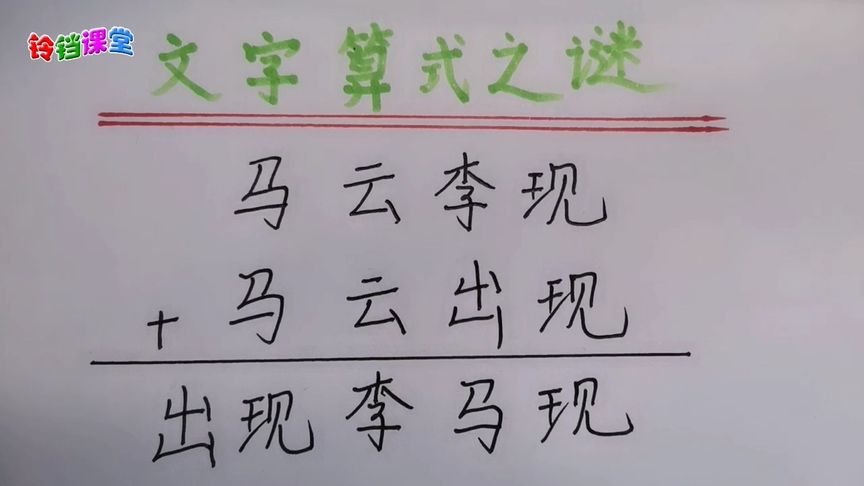 铃铛课堂
文字算式之谜
马云李现
+马云出现
出现李马现